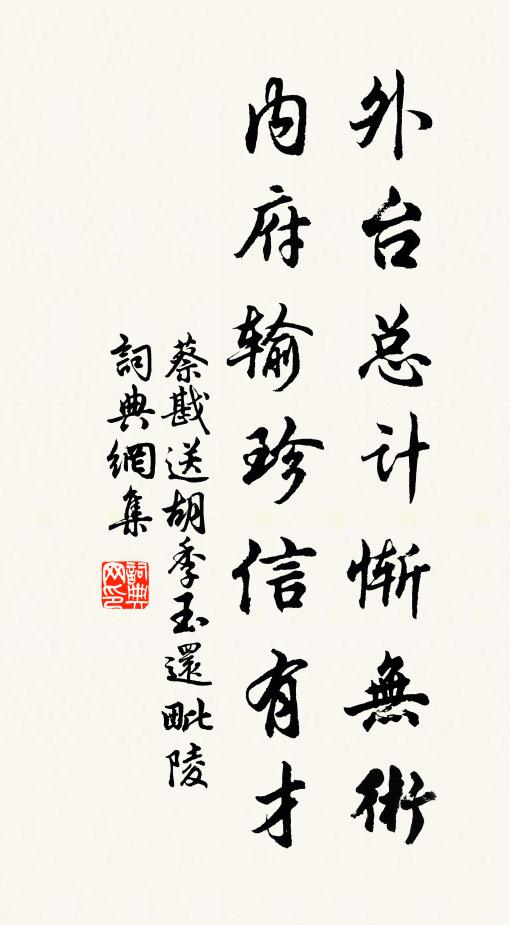 外台总计惭無術
内府输珍信有才
蔡戡送胡季玉還毗陵
詞典網集
詞典
网印